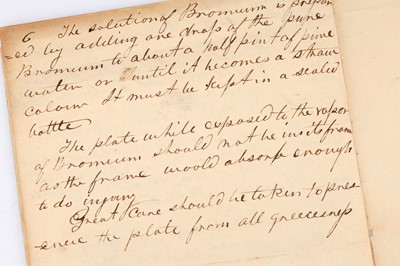 6 The solution of Bromium is prepar
=ed by adding one drop of the pure
Bromium to about a half pint of pure
water or until it becomes a straw
colour It must be kept in a sealed
bottle
The plate while exposed to the vapor
of Bromium should not be in its frame
as the frame would absorb enough
to do injury
Great Care should be taken to pres-
-erve the plate from all greeceness